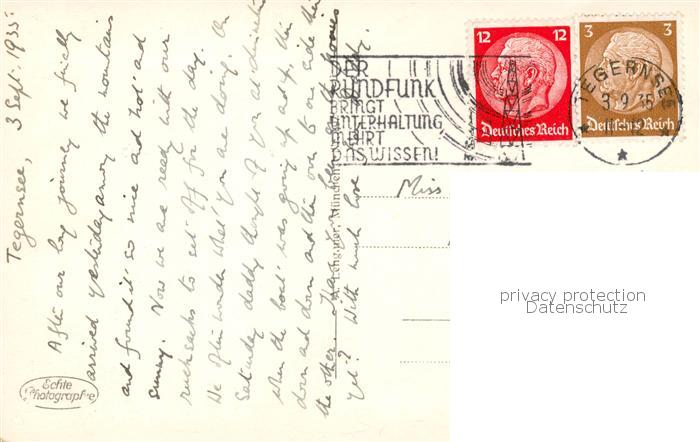 Tegernsee, 3 Sept. 1935.
After our long journey we finally
arrived yesterday among the mountains
and found it so nice and hot and
sunny. Now we are ready with our
rucksacks to set off for the day.
We often wonder what you are doing. On
Saturday daddy thought of you at
when the boat was going up and up, then
down and down and then over to one side then
the other.
yet? With much love
Miss
12 12
Deutsches Reich
3 3
Deutsches Reich
DER
RUNDFUNK
BRINGT
UNTERHALTUNG
MEHRT
DAS WISSEN!
TEGERNSEE
3.9.35
München
Echte
Photographie
privacy protection
Datenschutz